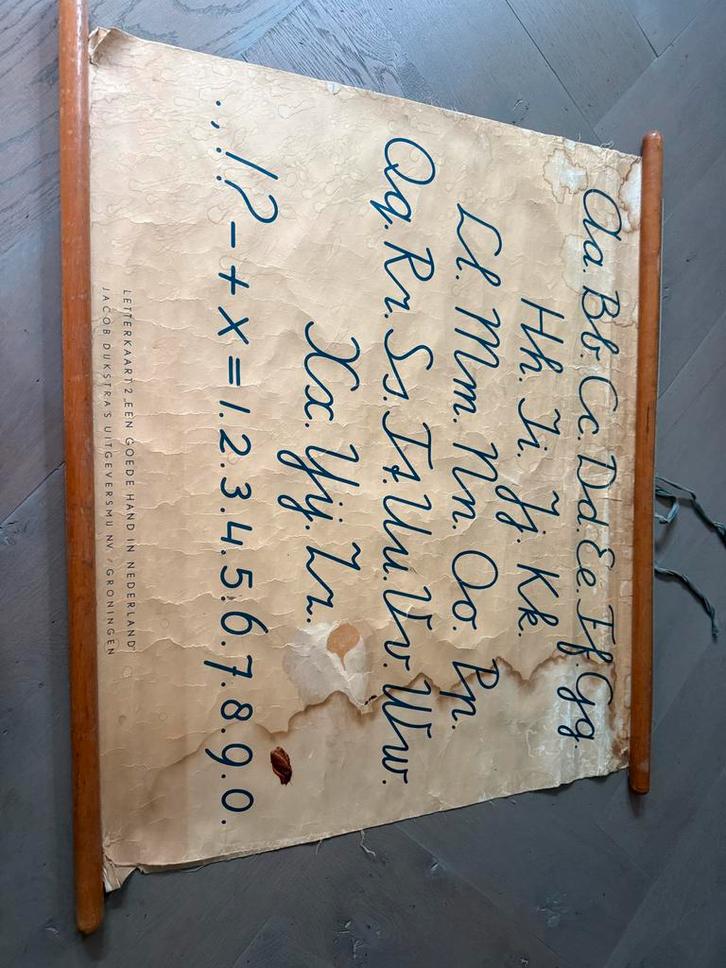 Aa. Bb. Cc. Dd. Ee. Ff. Gg.
Hh. Ii. Jj. Kk.
Ll. Mm. Nn. Oo. Pp.
Qq. Rr. Ss. Tt. Uu. Vv. Ww.
Xx. Yy. Zz.
. , ! ? - + x = 1. 2. 3. 4. 5. 6. 7. 8. 9. 0.
LETTERKAART 2 „EEN GOEDE HAND IN NEDERLAND"
JACOB DIJKSTRA'S UITGEVERSMIJ NV / GRONINGEN